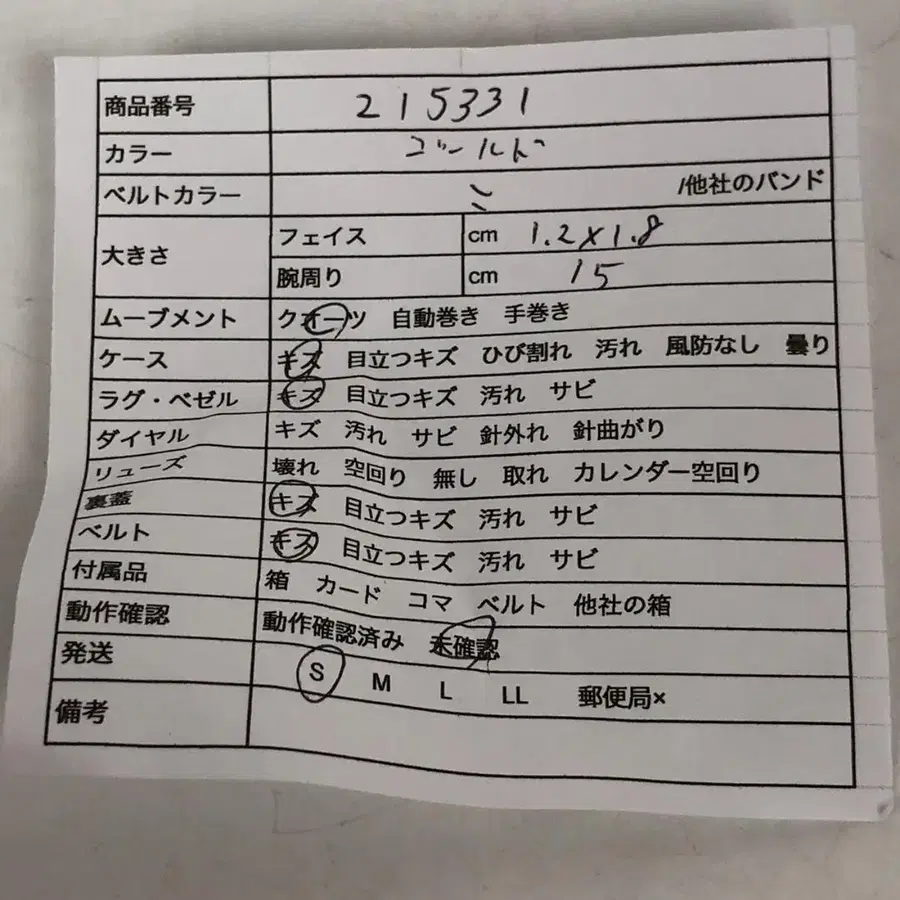 商品番号 215331
カラー ゴールド
ベルトカラー 〃 /他社のバンド
大きさ フェイス cm 1.2×1.8
腕周り cm 15
ムーブメント クオーツ 自動巻き 手巻き
ケース キズ 目立つキズ ひび割れ 汚れ 風防なし 曇り
ラグ・ベゼル キズ 目立つキズ 汚れ サビ
ダイヤル キズ 汚れ サビ 針外れ 針曲がり
リューズ 壊れ 空回り 無し 取れ カレンダー空回り
裏蓋 キズ 目立つキズ 汚れ サビ
ベルト キズ 目立つキズ 汚れ サビ
付属品 箱 カード コマ ベルト 他社の箱
動作確認 動作確認済み 未確認
発送 S M L LL 郵便局×
備考